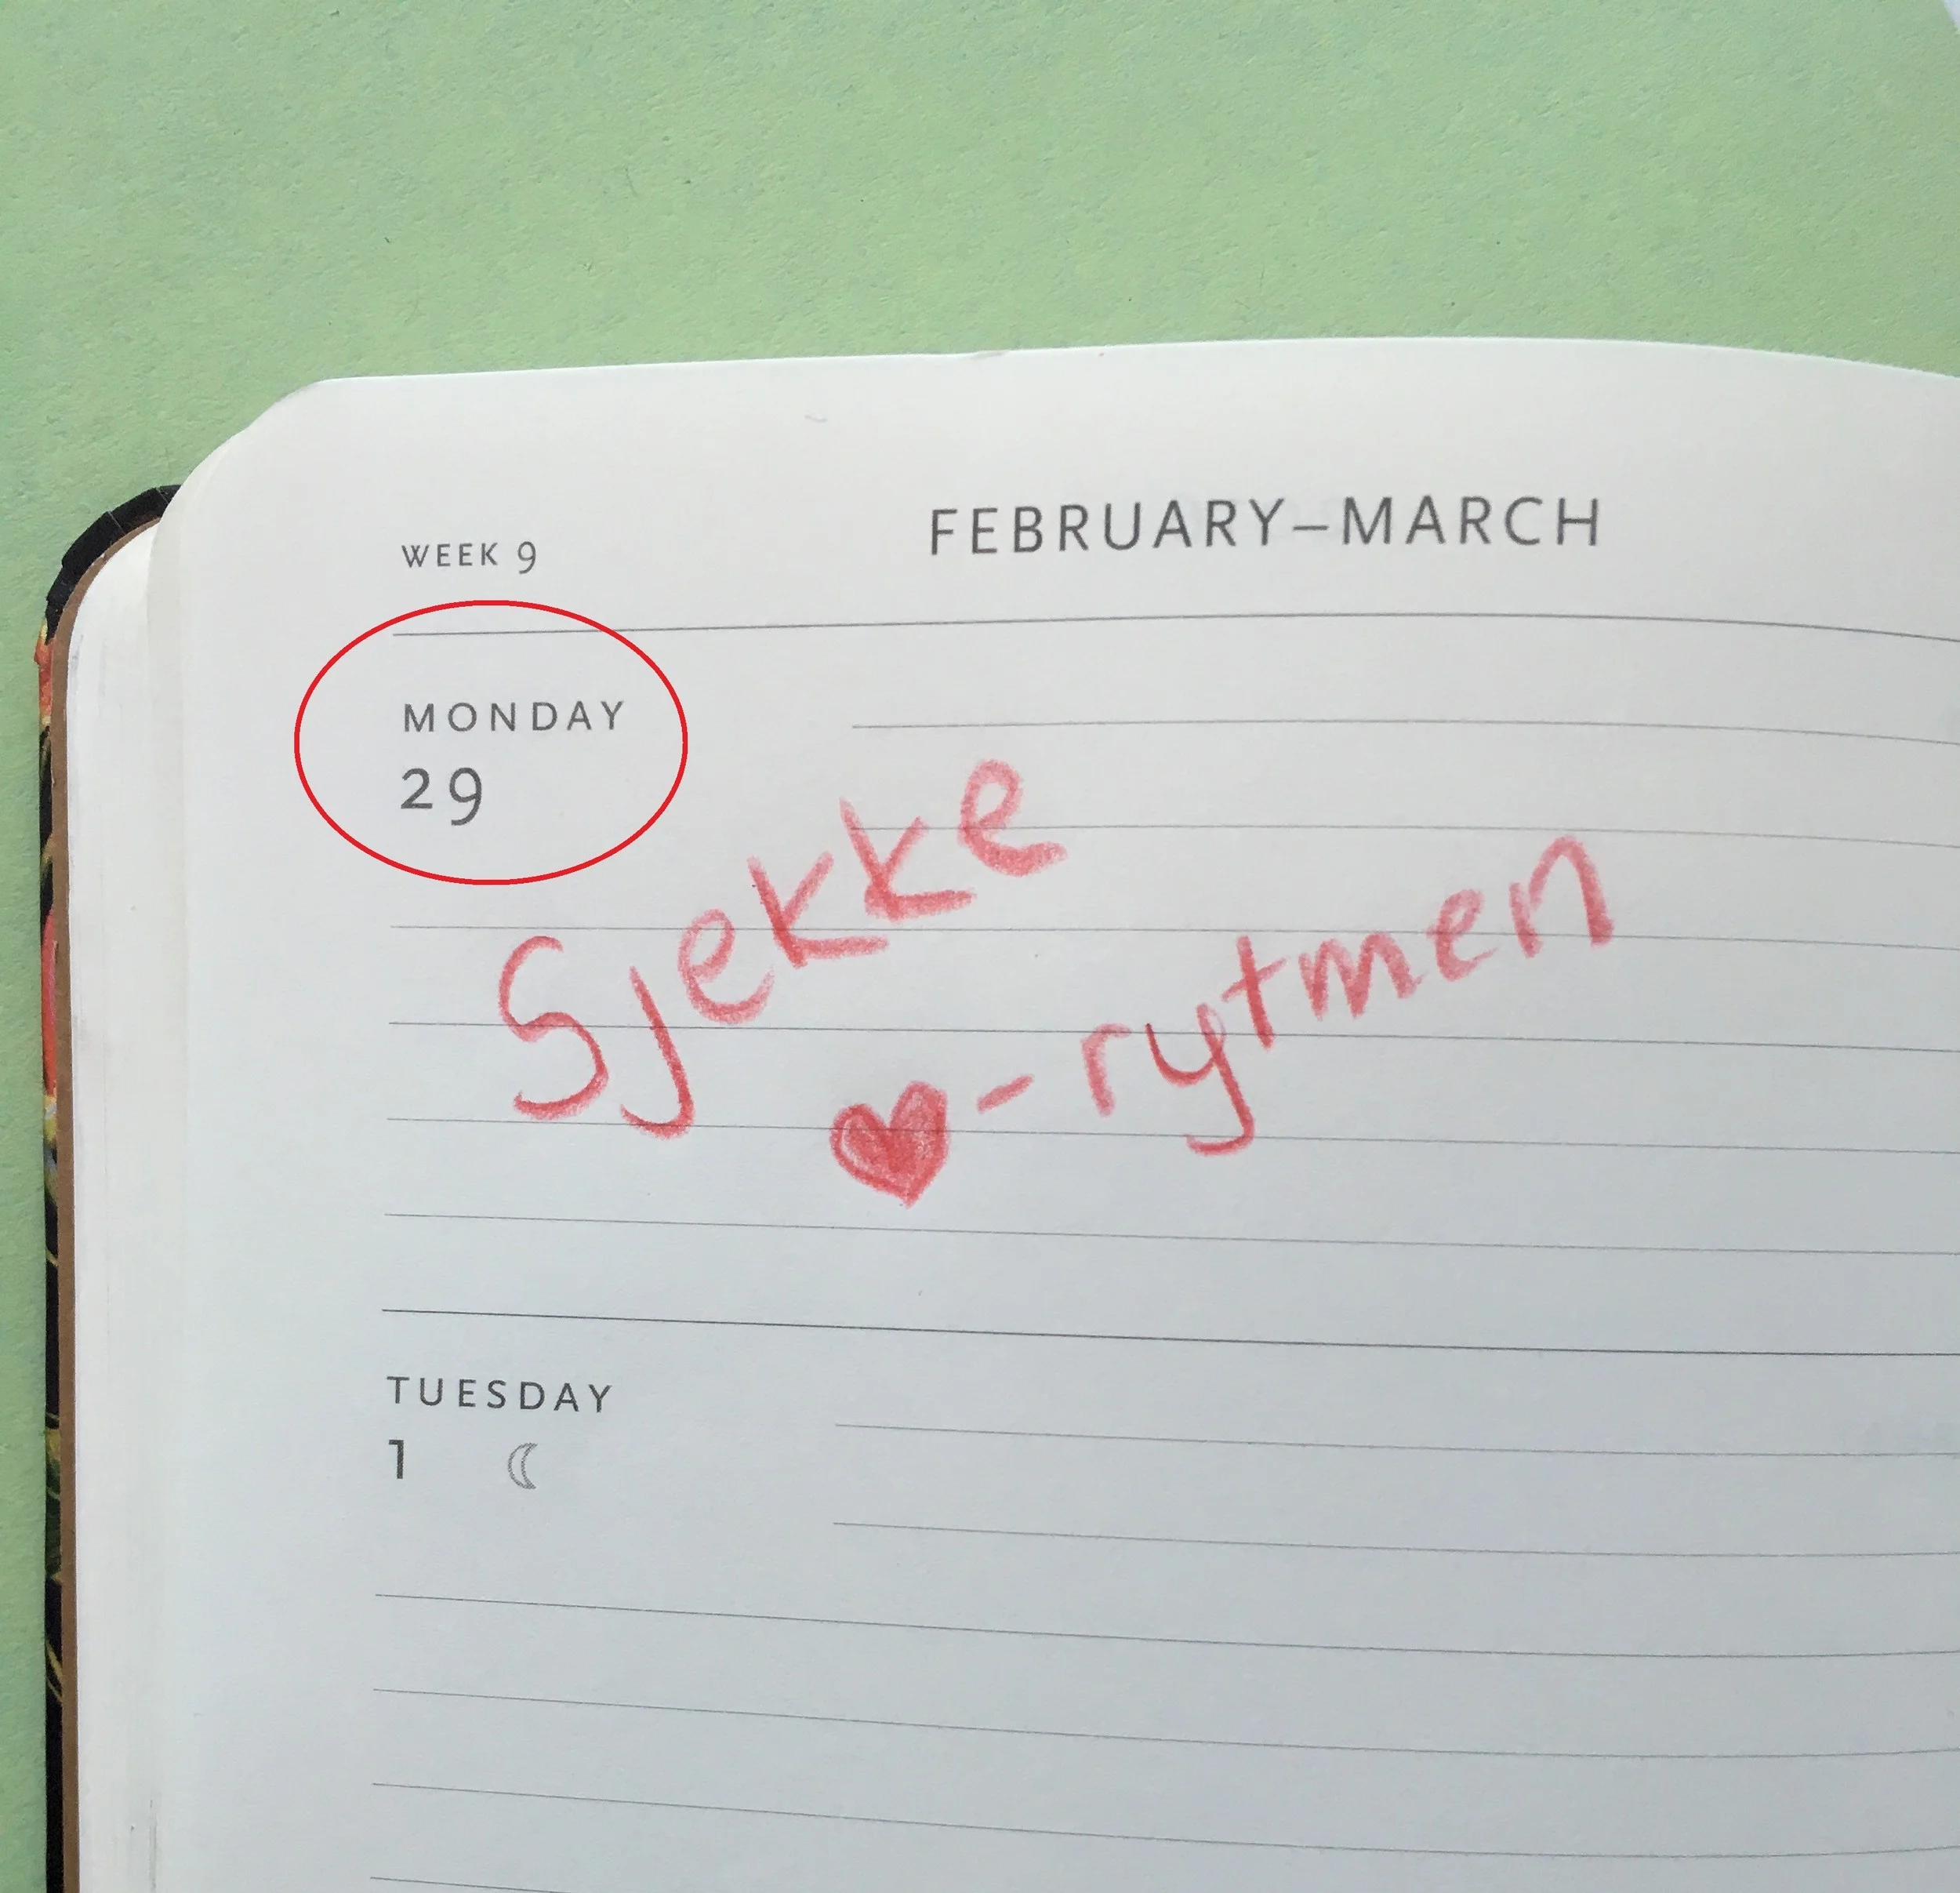 WEEK 9
FEBRUARY–MARCH
MONDAY
29
Sjekke
♥-rytmen
TUESDAY
1